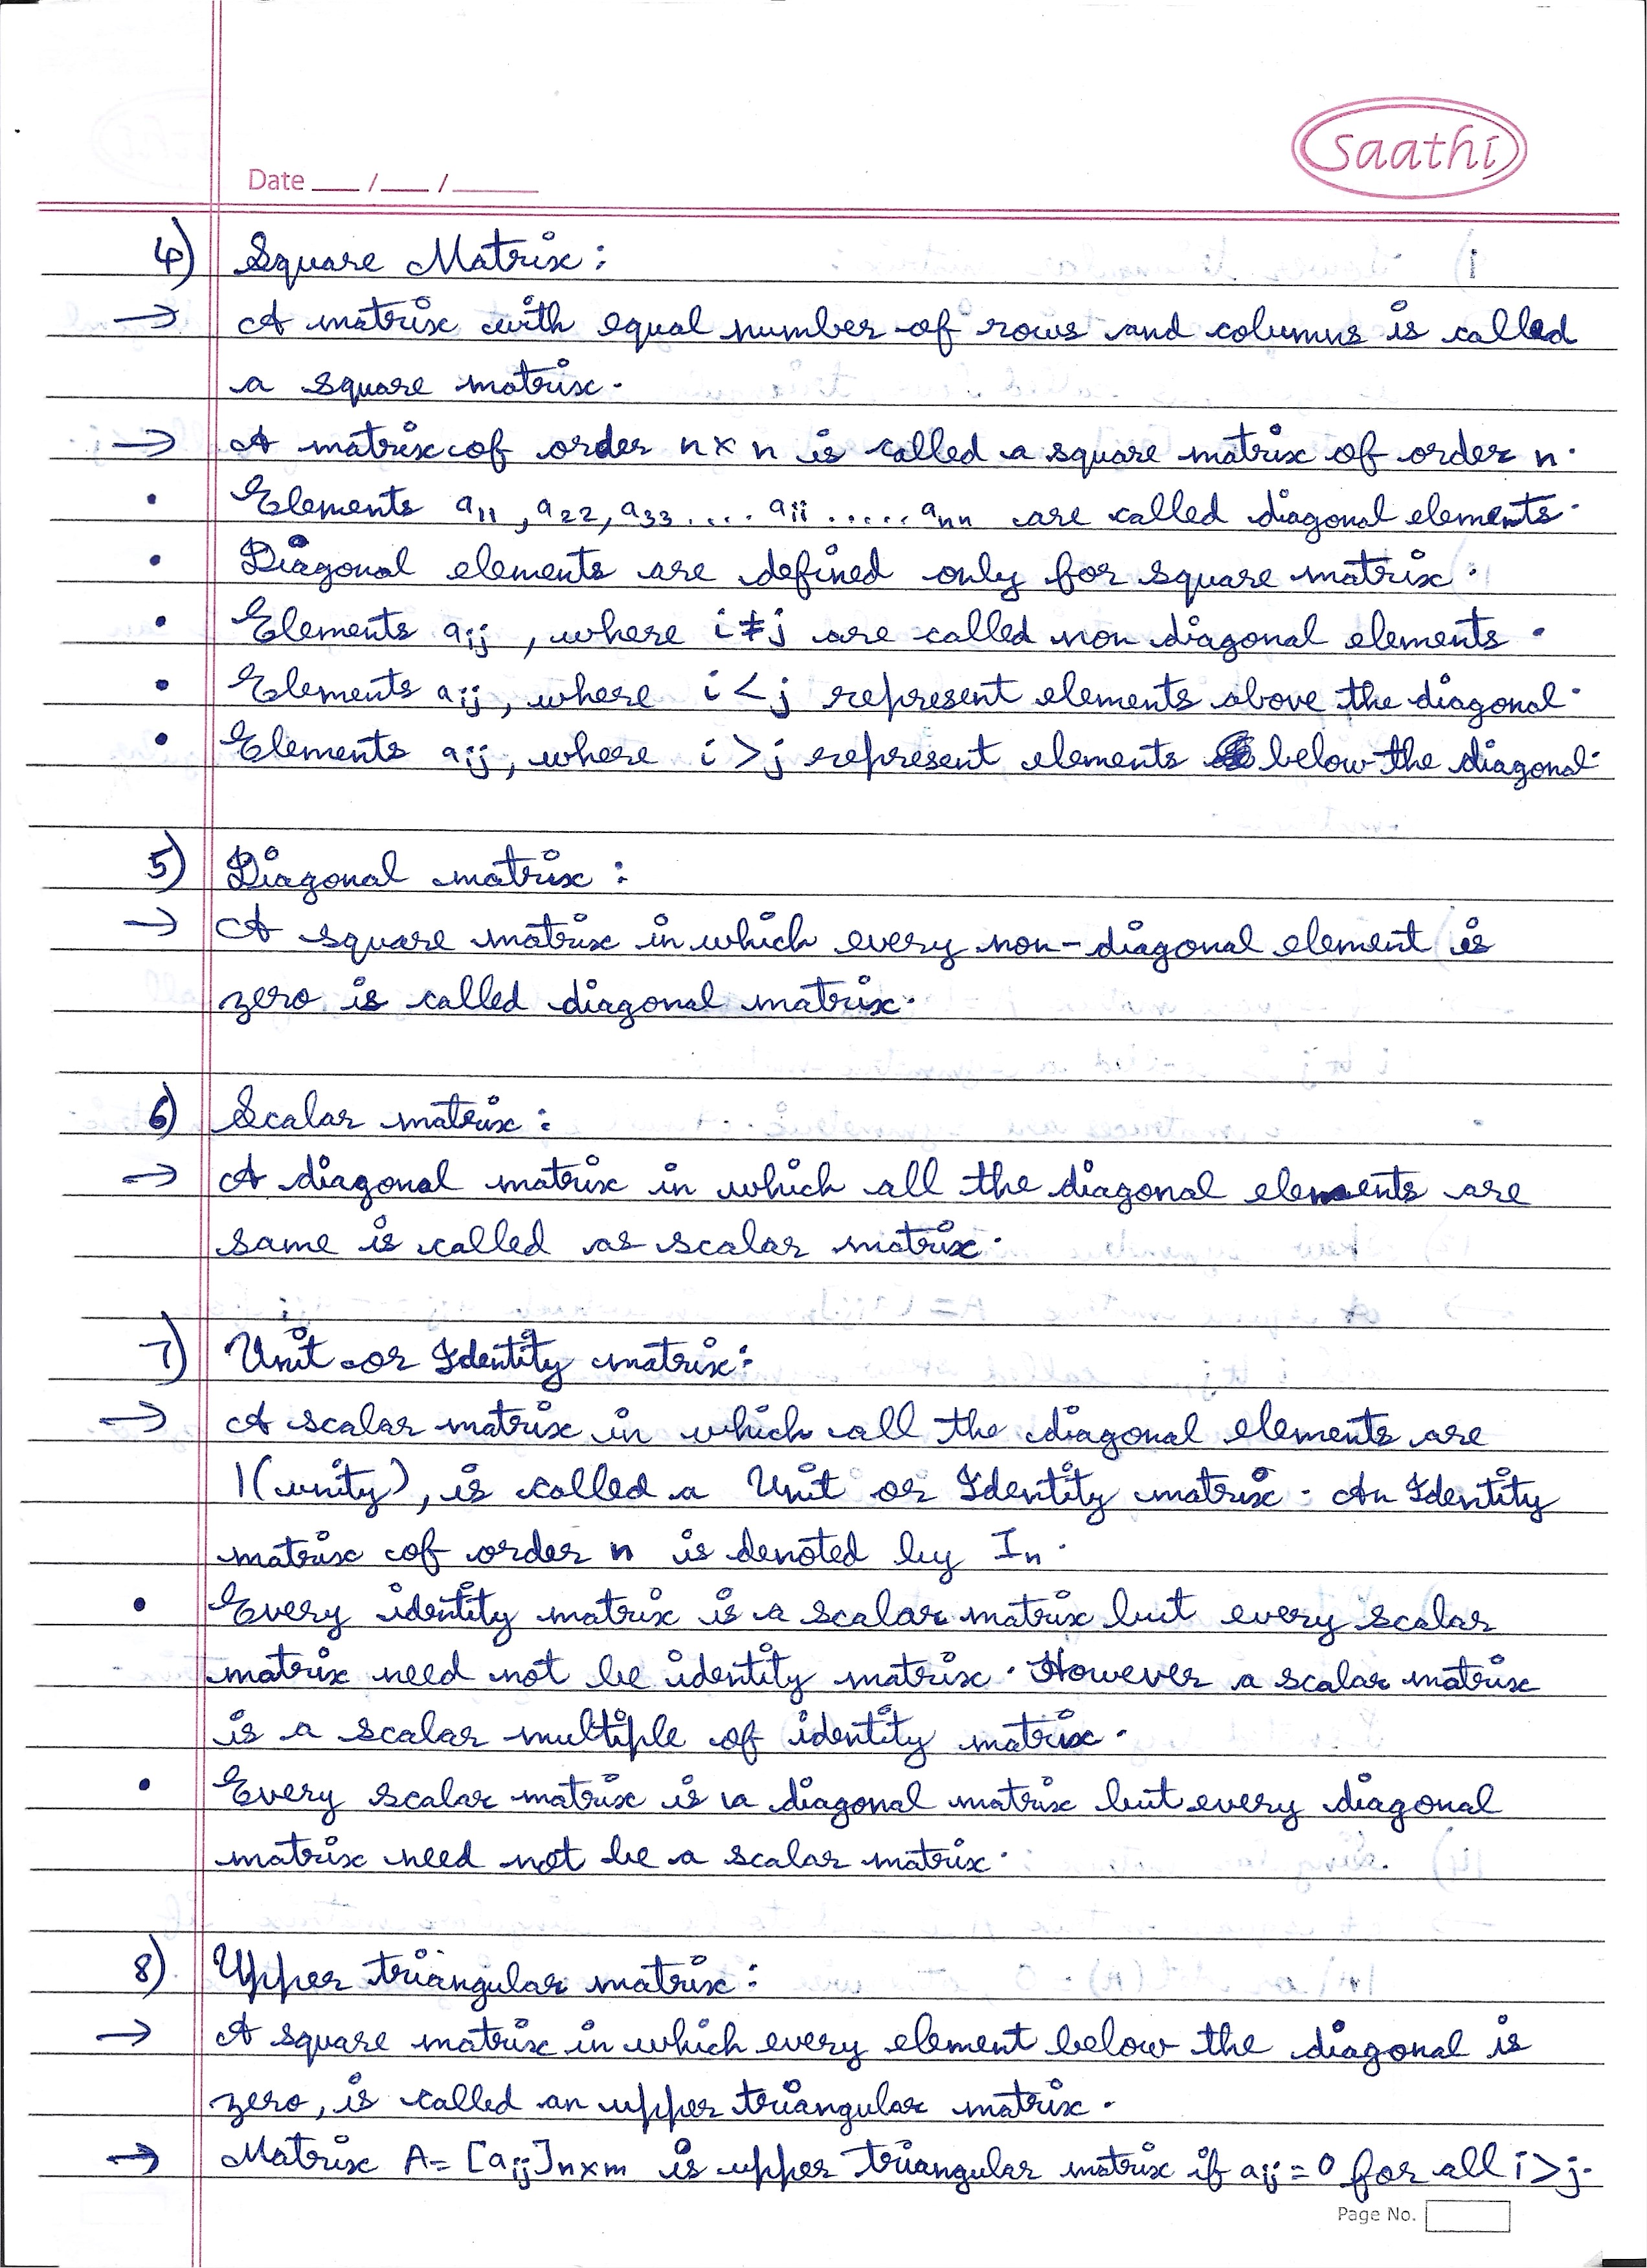 saathi
Date ___ / ___ / ______
4) Square Matrix:
→ A matrix with equal number of rows and columns is called
a square matrix.
→ A matrix of order n×n is called a square matrix of order n.
• Elements a11, a22, a33.... aii ..... ann are called diagonal elements.
• Diagonal elements are defined only for square matrix.
• Elements aij, where i≠j are called non diagonal elements.
• Elements aij, where i<j represent elements above the diagonal.
• Elements aij, where i>j represent elements below the diagonal.
5) Diagonal matrix:
→ A square matrix in which every non-diagonal element is
zero is called diagonal matrix.
6) Scalar matrix:
→ A diagonal matrix in which all the diagonal elements are
same is called as scalar matrix.
7) Unit or Identity matrix:
→ A scalar matrix in which all the diagonal elements are
1(unity), is called a Unit or Identity matrix. An Identity
matrix of order n is denoted by In.
• Every identity matrix is a scalar matrix but every scalar
matrix need not be identity matrix. However a scalar matrix
is a scalar multiple of identity matrix.
• Every scalar matrix is a diagonal matrix but every diagonal
matrix need not be a scalar matrix.
8) Upper triangular matrix:
→ A square matrix in which every element below the diagonal is
zero, is called an upper triangular matrix.
→ Matrix A= [aij]n×m is upper triangular matrix if aij=0 for all i>j.
Page No.